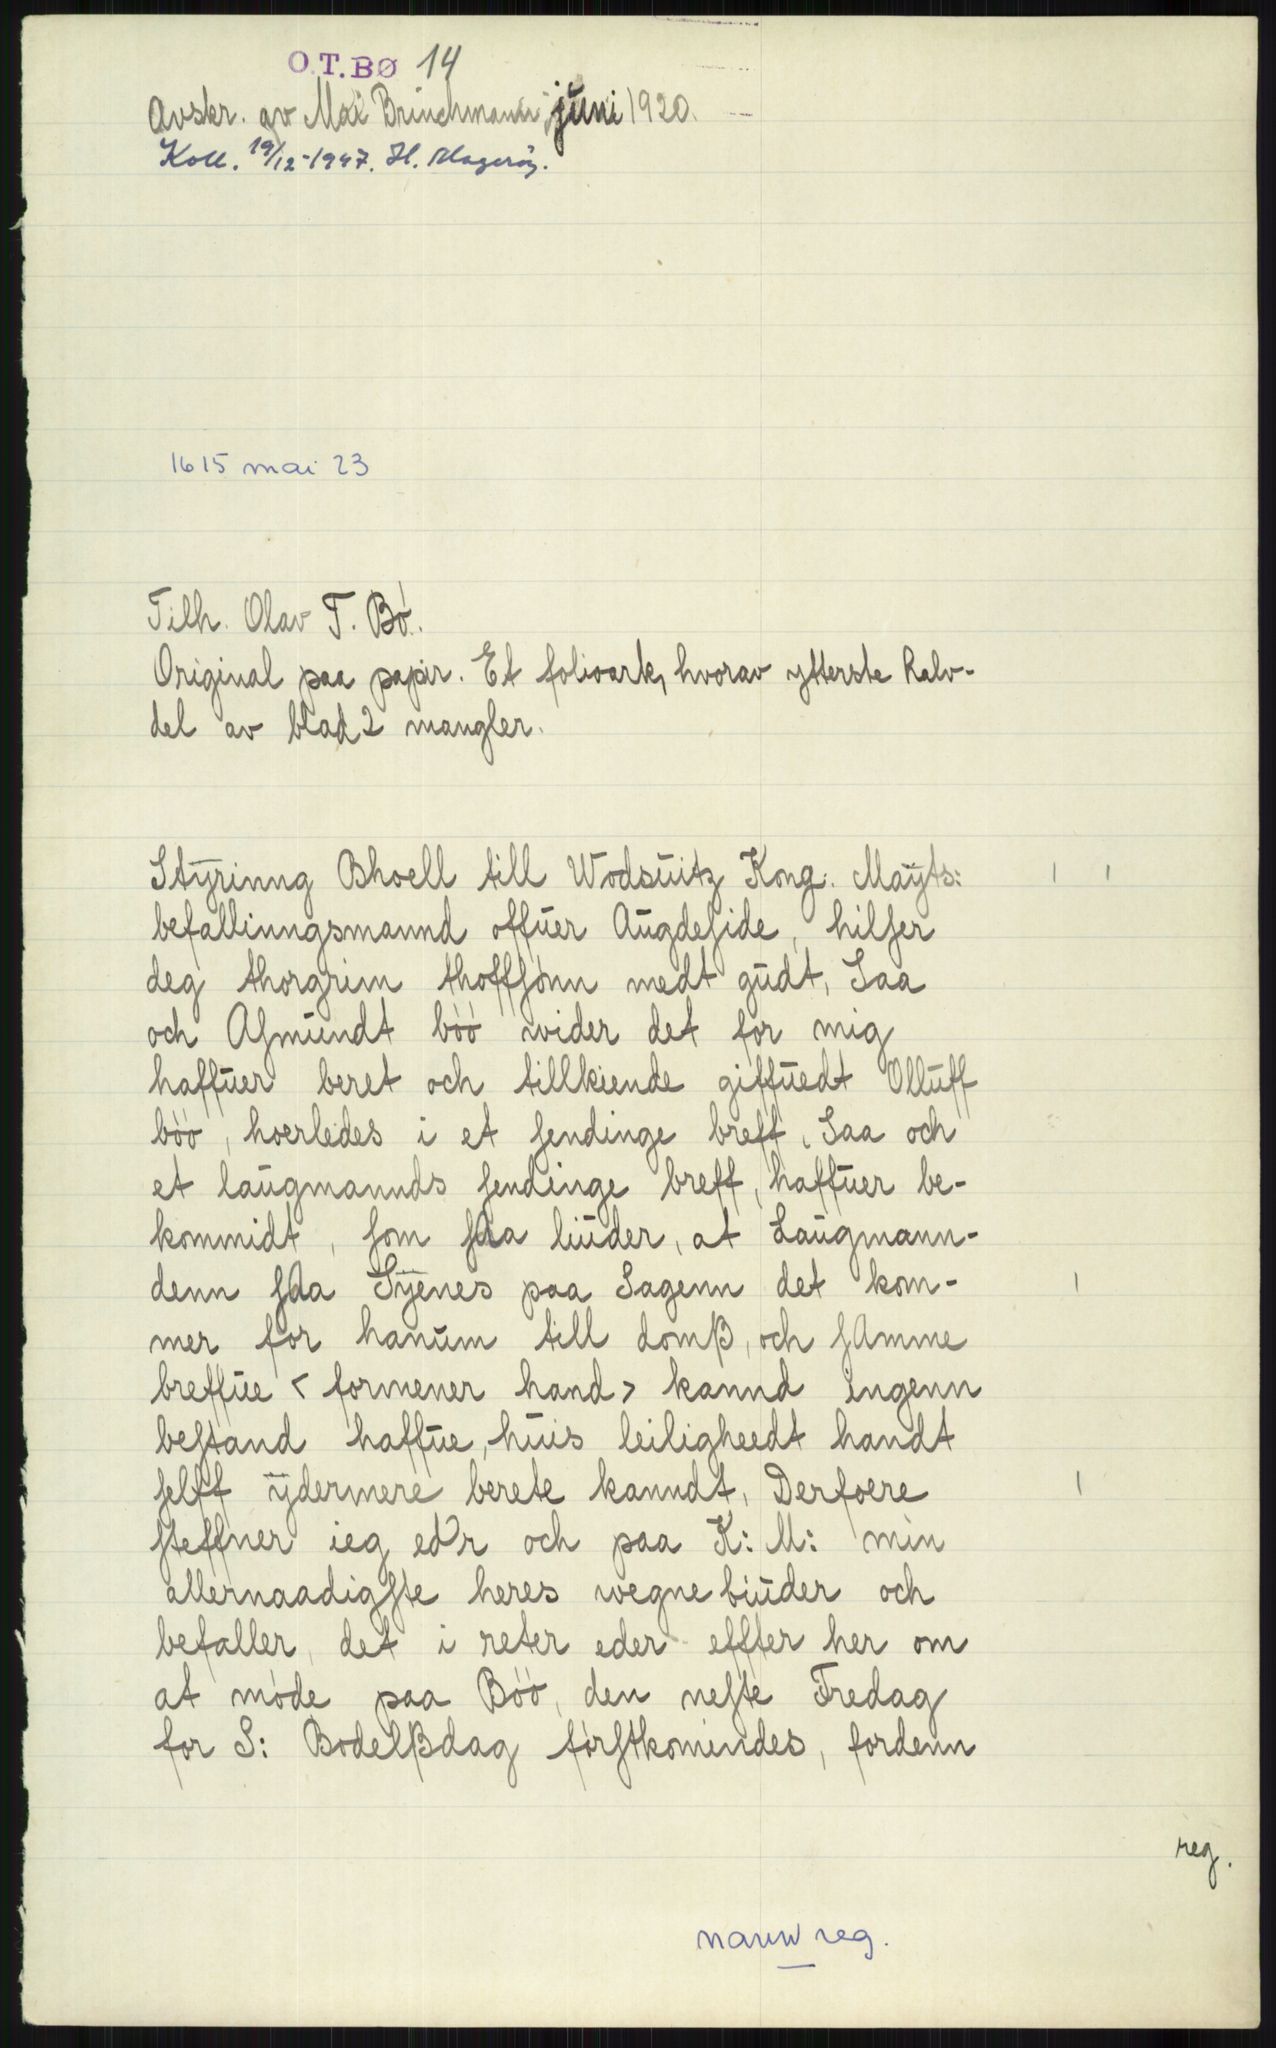 O.T.BØ 14
Avskr. av Mai Brinchmann, juni 1920.
Koll. 19/12-1947. H. Magerøy.
1615 mai 23
Tilh. Olav T. Bø.
Original paa papir. Et folioark, hvorav ytterste halv-
del av blad 2 mangler.
Stÿrinng Bhoell till Wodsuitz Kong. Maÿts:
befallinngsmannd offuer Augdeſide, hilſer
deg thorgrim thoffſønn medt gudt, Saa
och Aſmundt böö wider det for mig
haffuer beret och tillkiende giffuedt Olluff
böö, hoerledes i et ſendinge breff, Saa och
et laugmannds ſendinge breff, haffuer be-
kommidt, ſom ſAa liuder, at Laugmann-
denn ſAa Sÿenes paa Sagenn det kom-
mer for hanum till domß, och ſAmme
breffue < formener hand > kannd ingenn
beſtand haffue, huis leiligheedt handt
ſelff ÿdermere berete kanndt, Derfoere
ſteffner ieg eder och paa K: M: min
allernaadigſte heres wegne biuder och
befaller, det i reter eder effter her om
at møde paa Böö, den neſte Fredag
for S: Bodelßdag førſtkomindes, fordenn
reg.
navn reg.